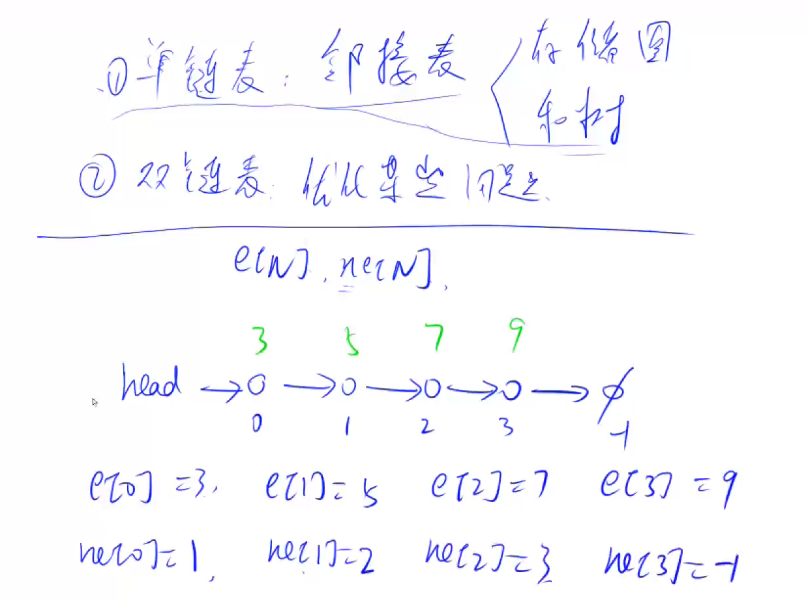 ① 单链表：邻接表 存储图
和树
② 双链表：优化某些问题
e[N], ne[N],
3 5 7 9
head → o → o → o → o → ∅
0 1 2 3 -1
e[0]=3, e[1]=5 e[2]=7 e[3]=9
ne[0]=1, ne[1]=2 ne[2]=3 ne[3]=-1